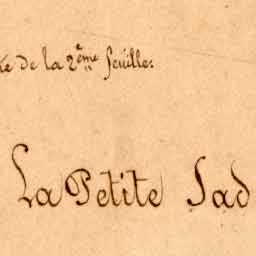 te de la 2ème feuille.
La Petite Sad